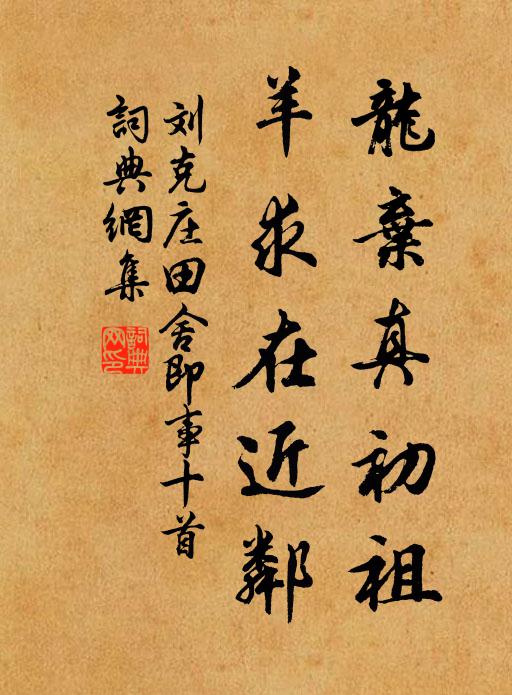 龍棄真初祖
羊求在近鄰
刘克庄田舍即事十首
詞典網集
詞典网印